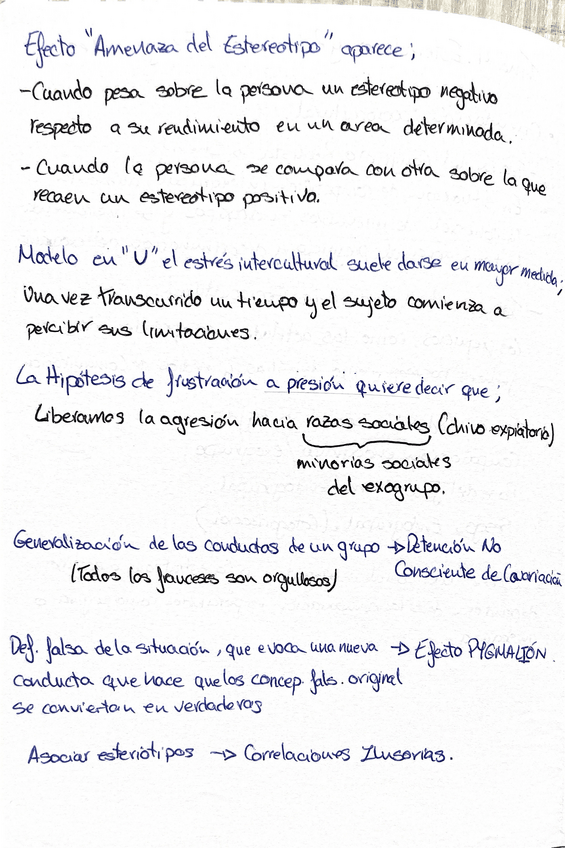 Efecto "Amenaza del Estereotipo" aparece;
-Cuando pesa sobre la persona un estereotipo negativo
respecto a su rendimiento en un area determinada.
- Cuando la persona se compara con otra sobre la que
recaen un estereotipo positivo.
Modelo en "U" el estrés intercultural suele darse en mayor medida;
Una vez transcurrido un tiempo y el sujeto comienza a
percibir sus limitaciones.
La Hipótesis de frustración a presión quiere decir que;
Liberamos la agresión hacia razas sociales (chivo expiatorio)
minorias sociales
del exogrupo.
Generalización de las conductas de un grupo → Detención No
(Todos los franceses son orgullosos) Consciente de Covariación
Def. falsa de la situación, que evoca una nueva → Efecto PYGMALIÓN.
conducta que hace que los concep. fals. original
se conviertan en verdaderas
Asociar esteriotipos → Correlaciones Ilusorias.